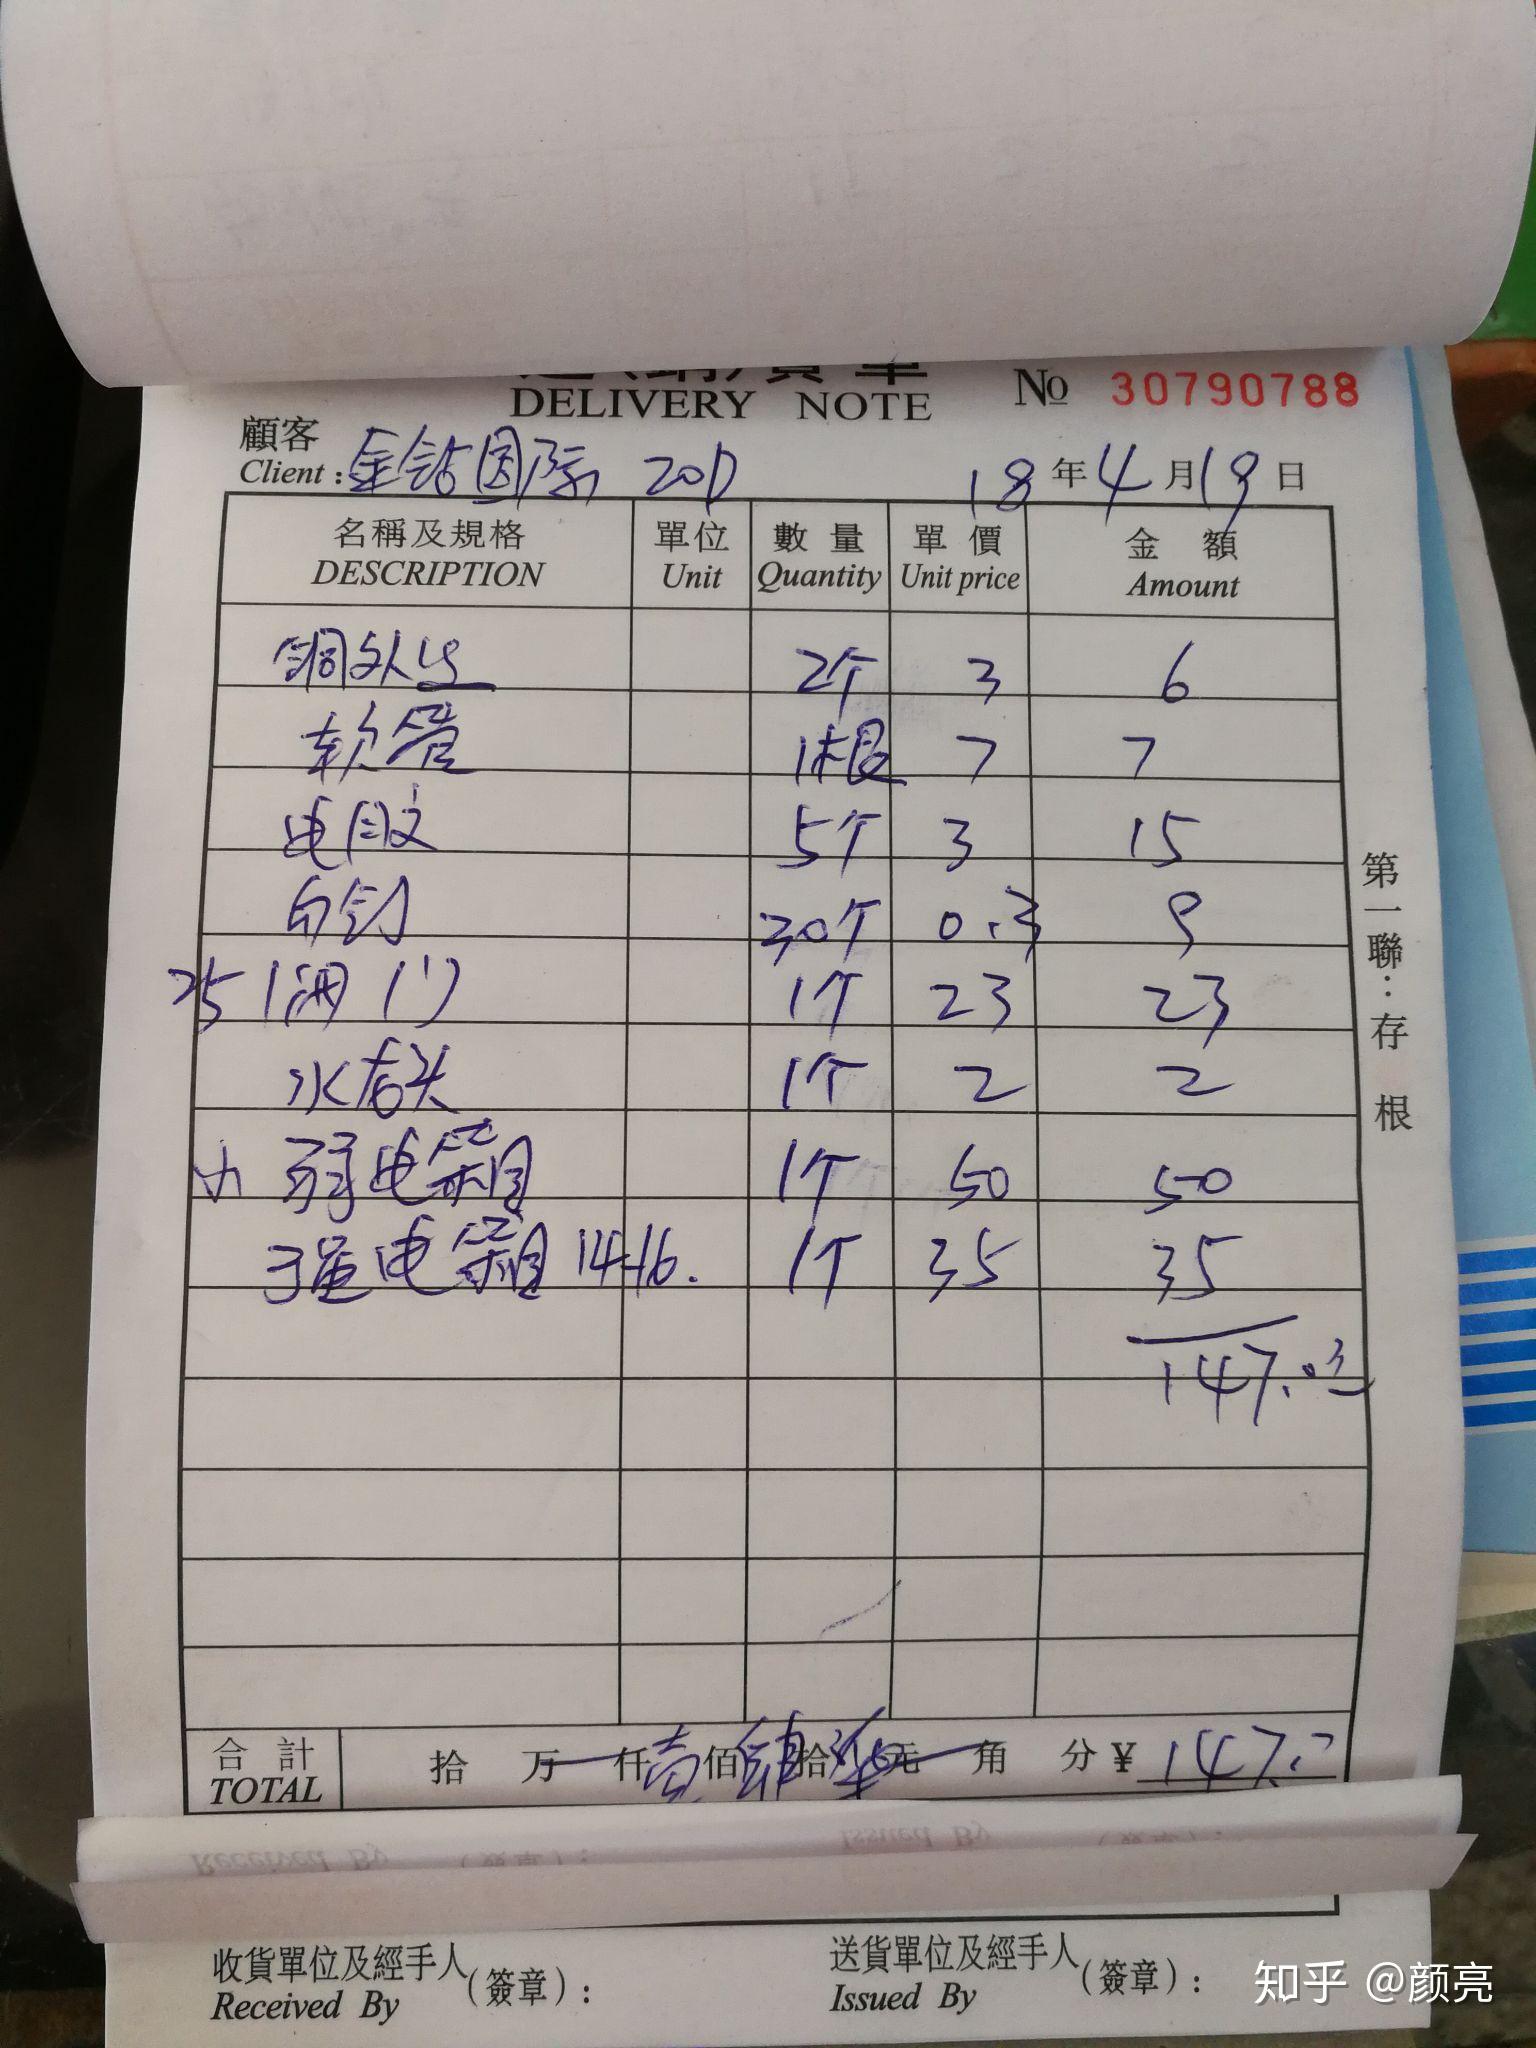 送(銷)貨單
DELIVERY NOTE No 30790788
顧客
Client: 金钻国际 20D 18年4月19日
名稱及規格 單位 數量 單價 金額
DESCRIPTION Unit Quantity Unit price Amount
铜外丝 2个 3 6
软管 1根 7 7
电胶 5个 3 15
30个 0.3 9
25 闸门 1个 23 23
水龙头 1个 2 2
小 弱电箱 1个 50 50
强电箱 14-16. 1个 35 35
147.元
合計 拾 万 仟 壹 佰 肆 拾 柒 元 角 分 ¥ 147.
TOTAL
Received By (簽章): Issued By (簽章):
收貨單位及經手人 (簽章): 送貨單位及經手人 (簽章):
Received By Issued By
第一聯:存根
知乎 @颜亮